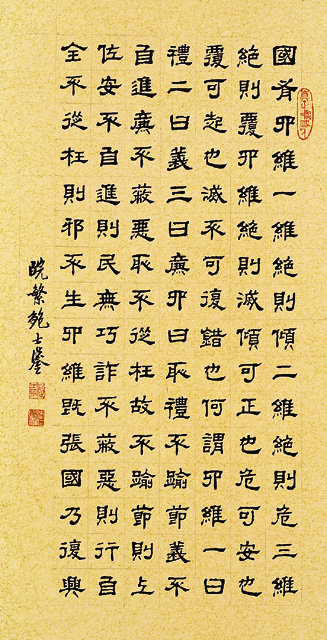 國有四維一維絕則傾二維絕則危三維
絕則覆四維絕則滅傾可正也危可安也
覆可起也滅不可復錯也何謂四維一曰
禮二曰義三曰廉四曰恥禮不踰節義不
自進廉不蔽惡恥不從枉故不踰節則上
位安不自進則民無巧詐不蔽惡則行自
全不從枉則邪不生四維既張國乃復興
皖繁鮑士